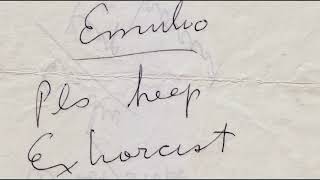 Emilio
Pls keep
Exhorcist